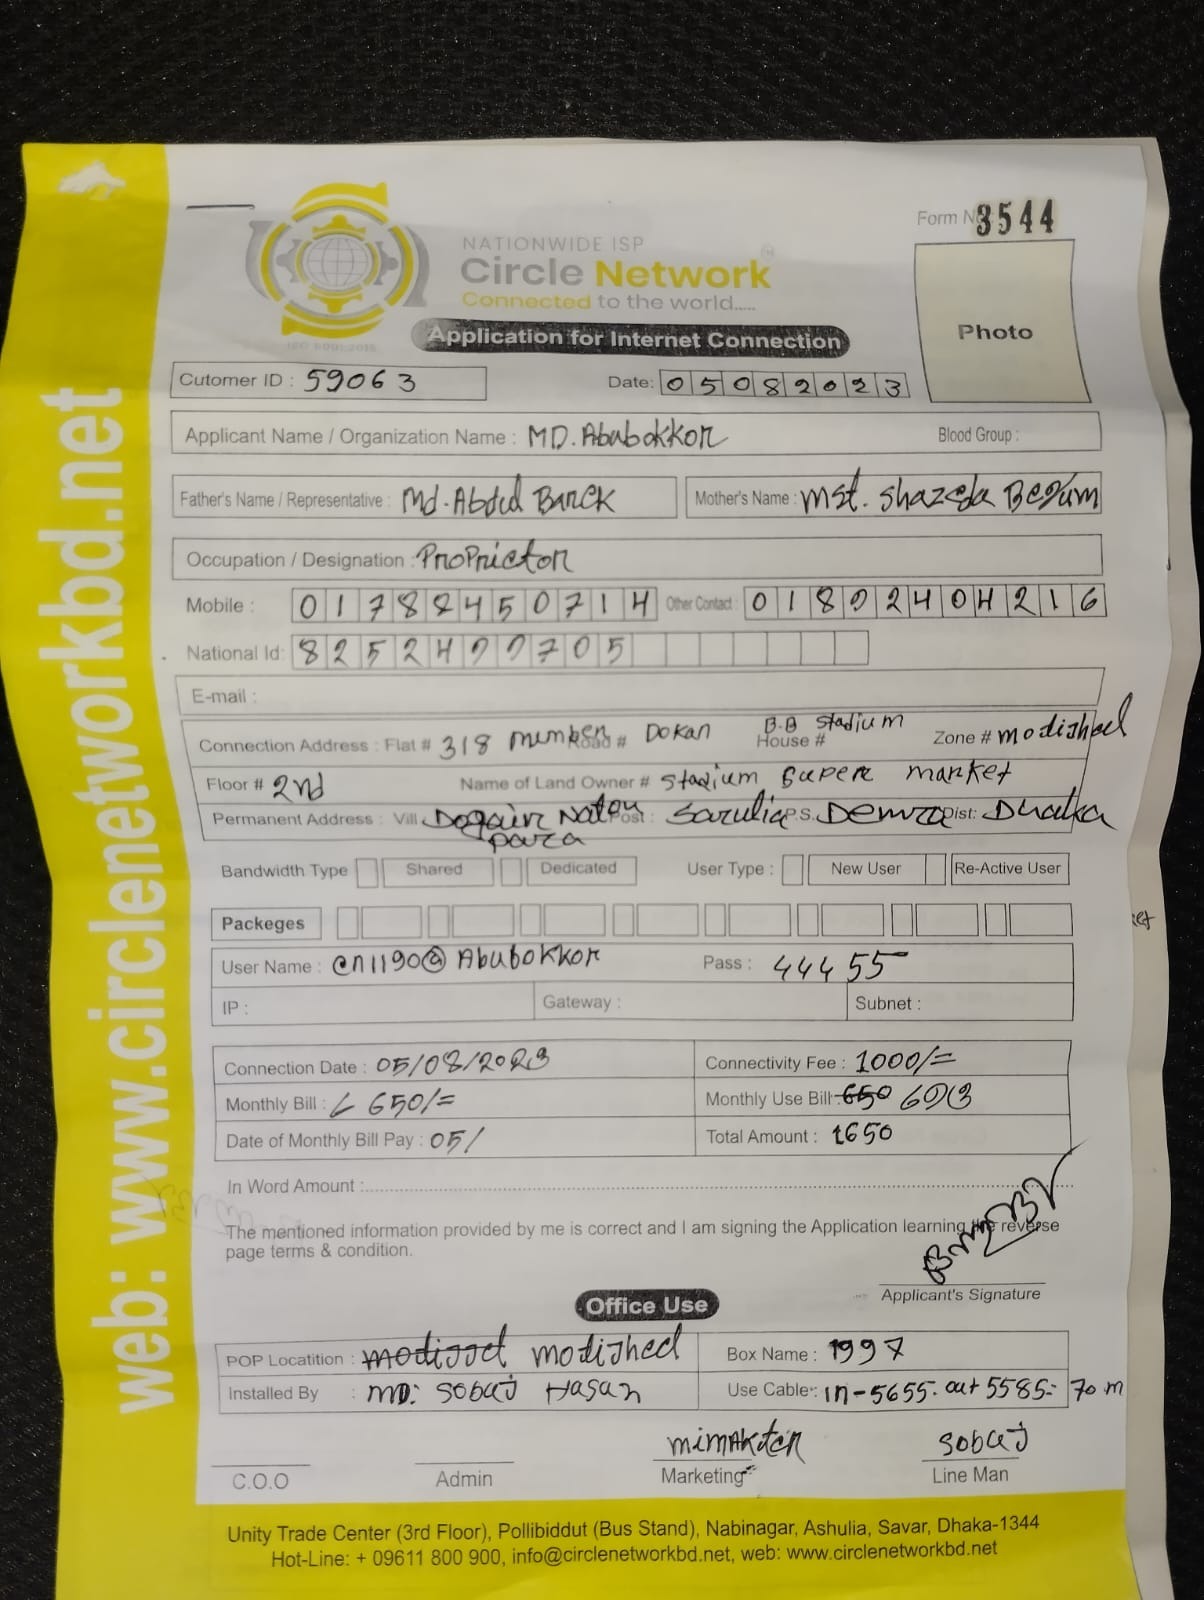 Form N 3544
NATIONWIDE ISP
Circle Network
Connected to the world.....
ISO 9001:2015
Application for Internet Connection
Photo
Cutomer ID : 59063 Date: 05082023
Applicant Name / Organization Name : MD. Abubokkor Blood Group :
Father's Name / Representative : Md. Abdul Barek Mother's Name : Mst. Shazeda Begum
Occupation / Designation : Proprietor
Mobile : 01788450714 Other Contact : 01892404216
National Id: 8252499705
E-mail :
Connection Address : Flat # 318 Road # Dokan House # B.B Stadium Zone # modijheel
Floor # 2nd Name of Land Owner # Stadium Super market
Permanent Address : Vill Dogair Natun para Post : Sarulia P.S. Demra Dist: Dhaka
Bandwidth Type Shared Dedicated User Type : New User Re-Active User
Packeges
User Name : cn1190@Abubokkor Pass : 444 55
IP : Gateway : Subnet :
Connection Date : 05/08/2023 Connectivity Fee : 1000/=
Monthly Bill : 650/= Monthly Use Bill: 650
Date of Monthly Bill Pay : 05/ Total Amount : 1650
In Word Amount :
The mentioned information provided by me is correct and I am signing the Application learning the reverse
page terms & condition.
Applicant's Signature
Office Use
POP Locatition : modijheel Box Name : 1997
Installed By : MD: Sobuj Hasan Use Cable : in-5655. out 5585= 70 m
mimAkter Sobuj
C.O.O Admin Marketing Line Man
Unity Trade Center (3rd Floor), Pollibiddut (Bus Stand), Nabinagar, Ashulia, Savar, Dhaka-1344
Hot-Line: + 09611 800 900, info@circlenetworkbd.net, web: www.circlenetworkbd.net
web: www.circlenetworkbd.net